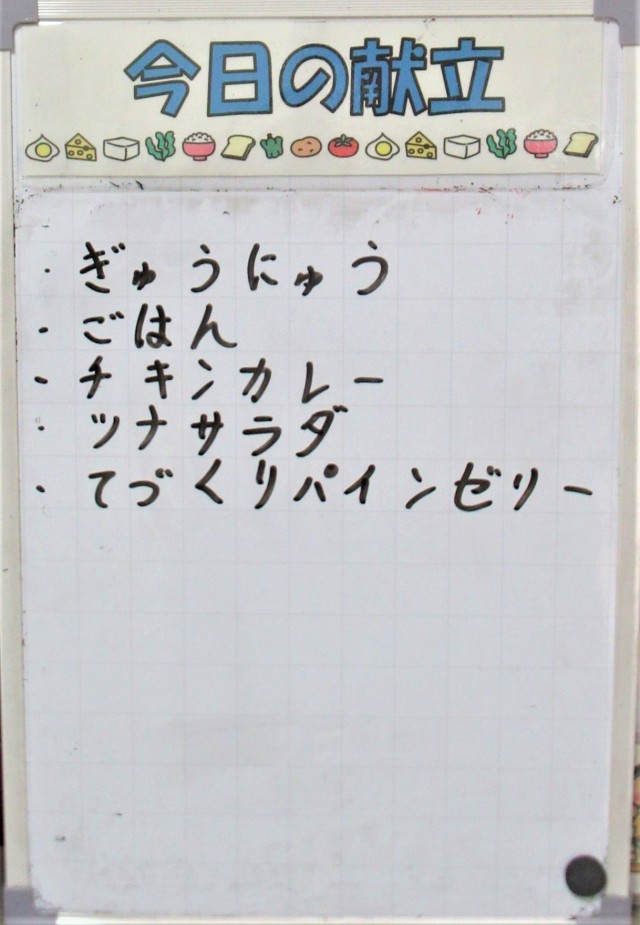 今日の献立
・ぎゅうにゅう
・ごはん
・チキンカレー
・ツナサラダ
・てづくりパインゼリー